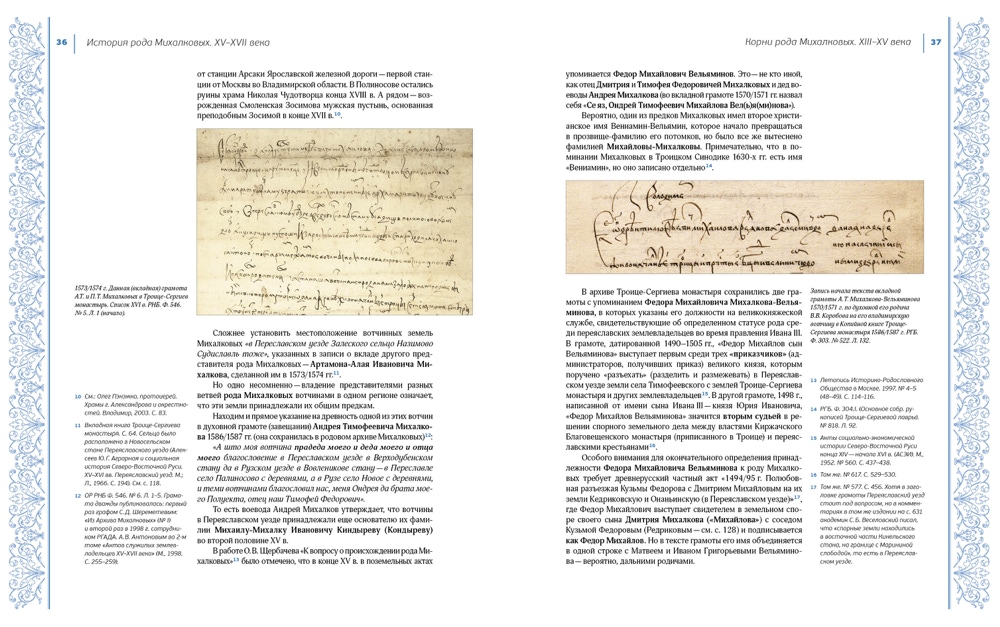 36
История рода Михалковых. XV–XVII века
от станции Арсаки Ярославской железной дороги — первой стан-
ции от Москвы во Владимирской области. В Полиносове остались
руины храма Николая Чудотворца конца XVIII в. А рядом — воз-
рожденная Смоленская Зосимова мужская пустынь, основанная
преподобным Зосимой в конце XVII в.10.
1573/1574 г. Данная (вкладная) грамота
А.Т. и П.Т. Михалковых в Троице-Сергиев
монастырь. Список XVI в. РНБ. Ф. 546.
№ 5. Л. 1 (начало).
Сложнее установить местоположение вотчинных земель
Михалковых «в Переяславском уезде Залеского сельцо Назимово
Судиславль тоже», указанных в записи о вкладе другого пред-
ставителя рода Михалковых — Артамона-Алая Ивановича Ми-
халкова, сделанной им в 1573/1574 гг.11.
Но одно несомненно — владение представителями разных
ветвей рода Михалковых вотчинами в одном регионе означает,
что эти земли принадлежали их общим предкам.
Находим и прямое указание на древность одной из этих вотчин
в духовной грамоте (завещании) Андрея Тимофеевича Михалко-
ва 1586/1587 гг. (она сохранилась в родовом архиве Михалковых)12:
«А што моя вотчина прадеда моего и деда моего и отца
моего благословение в Переславском уезде в Верходубенском
стану да в Рузском уезде в Вовленикове стану — в Переславле
село Палиносово с деревнями, а в Рузе село Новое с деревнями,
и теми вотчинами благословил нас, меня Ондрея да брата мое-
го Полуекта, отец наш Тимофей Федорович».
То есть воевода Андрей Михалков утверждает, что вотчины
в Переяславском уезде принадлежали еще основателю их фами-
лии Михаилу-Михалку Ивановичу Киндыреву (Кондыреву)
во второй половине XV в.
В работе О.В. Щербачева «К вопросу о происхождении рода Ми-
халковых»13 было отмечено, что в конце XV в. в поземельных актах
10 См.: Олег Пэнэжко, протоиерей.
Храмы г. Александрова и окрестно-
стей. Владимир, 2003. С. 83.
11 Вкладная книга Троице-Сергиева
монастыря. С. 64. Сельцо было
расположено в Новосельском
стане Переяславского уезда (Алек-
сеев Ю.Г. Аграрная и социальная
история Северо-Восточной Руси.
XV–XVI вв. Переяславский уезд. М.;
Л., 1966. С. 194). См. с. 118.
12 ОР РНБ Ф. 546. № 6. Л. 1–5. Грамо-
та дважды публиковалась: первый
раз графом С.Д. Шереметевым:
«Из Архива Михалковых» (№ I)
и второй раз в 1998 г. сотрудни-
ком РГАДА. А.В. Антоновым во 2-м
томе «Актов служилых земле-
владельцев XV–XVII века» (М., 1998.
С. 255–259).
Корни рода Михалковых. XIII–XV века
37
упоминается Федор Михайлович Вельяминов. Это — не кто иной,
как отец Дмитрия и Тимофея Федоровичей Михалковых и дед во-
еводы Андрея Михалкова (во вкладной грамоте 1570/1571 гг. назвал
себя «Се яз, Ондрей Тимофеевич Михайлова Вел(ь)я(ми)нова»).
Вероятно, один из предков Михалковых имел второе христи-
анское имя Вениамин-Вельямин, которое начало превращаться
в прозвище-фамилию его потомков, но было все же вытеснено
фамилией Михайловы-Михалковы. Примечательно, что в по-
минании Михалковых в Троицком Синодике 1630-х гг. есть имя
«Вениамин», но оно записано отдельно14.
Запись начала текста вкладной
грамоты А.Т. Михалкова-Вельяминова
1570/1571 г. по духовной его родича
В.В. Коробова на его владимирскую
вотчину в Копийной книге Троице-
Сергиева монастыря 1586/1587 г. РГБ.
Ф. 303. № 522. Л. 132.
В архиве Троице-Сергиева монастыря сохранились две гра-
моты с упоминанием Федора Михайловича Михалкова-Велья-
минова, в которых указаны его должности на великокняжеской
службе, свидетельствующие об определенном статусе рода сре-
ди переяславских землевладельцев во время правления Ивана III.
В грамоте, датированной 1490–1505 гг., «Федор Михайлов сын
Вельяминов» выступает первым среди трех «приказчиков» (ад-
министраторов, получивших приказ) великого князя, которым
поручено «разъехать» (разделить и размежевать) в Переяслав-
ском уезде земли села Тимофеевского с землей Троице-Сергиева
монастыря и других землевладельцев15. В другой грамоте, 1498 г.,
написанной от имени сына Ивана III — князя Юрия Ивановича,
«Федор Михайлов Вельяминова» значится вторым судьей в ре-
шении спорного земельного дела между властями Киржачского
Благовещенского монастыря (приписанного в Троице) и переяс-
лавскими крестьянами16.
Особого внимания для окончательного определения принад-
лежности Федора Михайловича Вельяминова к роду Михалко-
вых требует древнерусский частный акт «1494/95 г. Полюбов-
ная разъезжая Кузьмы Федорова с Дмитрием Михайловым на их
земли Кедриковскую и Онаньинскую (в Переяславском уезде)»17,
где Федор Михайлович выступает свидетелем в земельном спо-
ре своего сына Дмитрия Михалкова («Михайлова») с соседом
Кузьмой Федоровым (Редриковым — см. с. 128) и подписывается
как Федор Михайлов. Но в тексте грамоты его имя объединяется
в одной строке с Матвеем и Иваном Григорьевыми Вельямино-
ва — вероятно, дальними родичами.
13 Летопись Историко-Родословного
Общества в Москве. 1997. № 4–5
(48–49). С. 114–116.
14 РГБ. Ф. 304.I. (Основное собр. ру-
кописей Троице-Сергиевой лавры).
№ 818. Л. 92.
15 Акты социально-экономической
истории Северо-Восточной Руси
конца XIV — начала XVI в. (АСЭИ). М.,
1952. № 560. С. 437–438.
16 Том же. № 617. С. 529–530.
17 Том же. № 577. С. 456. Хотя в заго-
ловке грамоты Переяславский уезд
стоит под вопросом, но в коммен-
тариях в том же издании на с. 631
академик С.Б. Веселовский писал,
что «спорные земли находились
в восточной части Кинельского
стана, на границе с Марининой
слободой», то есть в Переяслав-
ском уезде.